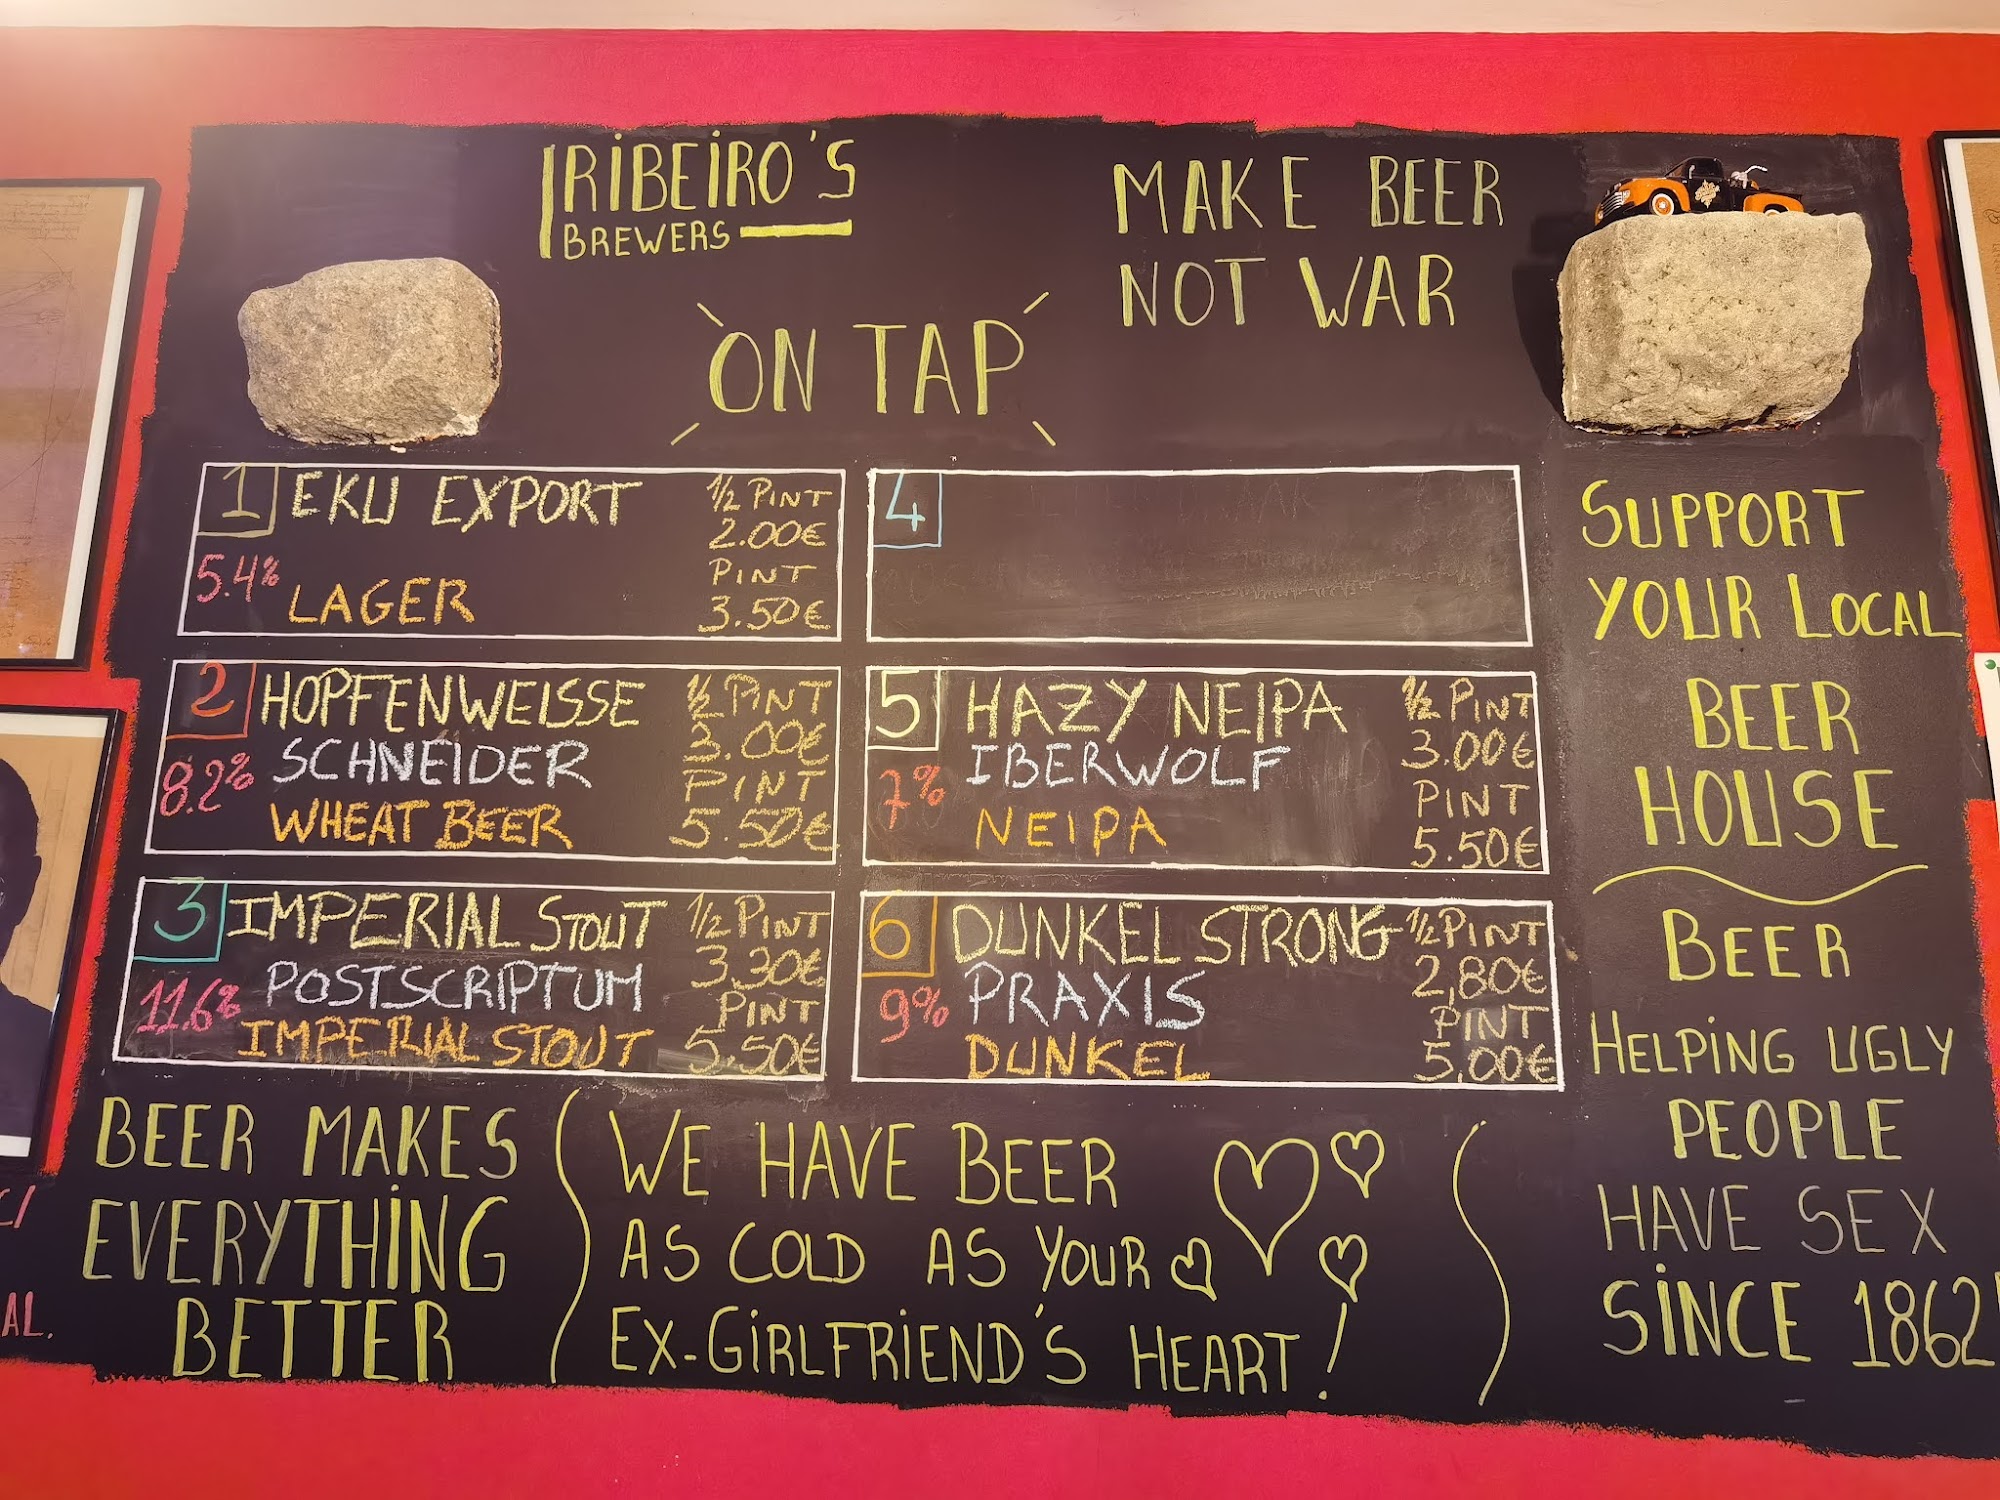 RIBEIRO'S
BREWERS
MAKE BEER
NOT WAR
ON TAP
1 EKU EXPORT
5.4%
LAGER
1/2 PINT
2.00€
PINT
3.50€
2 HOPFENWEISSE
SCHNEIDER
8.2%
WHEAT BEER
1/2 PINT
3.00€
PINT
5.50€
3 IMPERIAL STOUT
POSTSCRIPTUM
11.6%
IMPERIAL STOUT
1/2 PINT
3.30€
PINT
5.50€
4
5 HAZY NEIPA
IBERWOLF
7%
NEIPA
1/2 PINT
3.00€
PINT
5.50€
6 DUNKEL STRONG
PRAXIS
9%
DUNKEL
1/2 PINT
2,80€
PINT
5,00€
SUPPORT
YOUR LOCAL
BEER
HOUSE
BEER
HELPING UGLY
PEOPLE
HAVE SEX
SINCE 1862
BEER MAKES
EVERYTHING
BETTER
WE HAVE BEER
AS COLD AS YOUR
EX-GIRLFRIEND'S HEART!
AL.